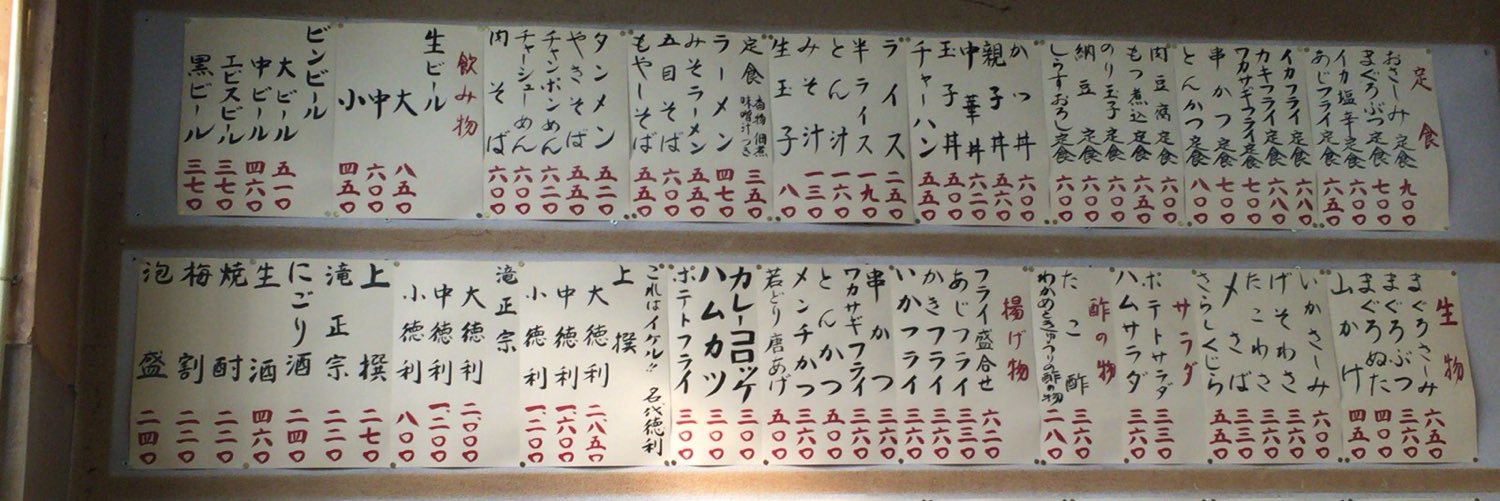 定食
おさしみ定食 九〇〇
まぐろぶつ定食 七〇〇
イカ塩辛定食 六〇〇
あじフライ定食 六五〇
イカフライ定食 六八〇
カキフライ定食 六八〇
ワカサギフライ定食 七〇〇
串かつ定食 七〇〇
とんかつ定食 八〇〇
肉豆腐定食 六〇〇
もつ煮込定食 六五〇
のり玉子定食 六〇〇
納豆定食 六〇〇
しらすおろし定食 六〇〇
かつ丼 六〇〇
親子丼 五六〇
中華丼 六二〇
玉子丼 五〇〇
チャーハン 五五〇
ライス 二五〇
半ライス 一九〇
とん汁 一六〇
みそ汁 一三〇
生玉子 八〇
定食 香物 佃煮 味噌汁つき 三五〇
ラーメン 四七〇
みそラーメン 五五〇
五目そば 五五〇
もやしそば 五五〇
タンメン 五二〇
やきそば 五五〇
チャンポンめん 六二〇
チャーシューめん 六〇〇
肉そば 六〇〇
飲み物
生ビール
大 八五〇
中 六〇〇
小 四五〇
ビンビール
大ビール 五一〇
中ビール 四六〇
エビスビール 三七〇
黒ビール 三七〇
生物
まぐろさしみ 六五〇
まぐろぶつ 三六〇
まぐろぬた 四〇〇
山かけ 四五〇
いかさしみ 六〇〇
たこわさ 三六〇
げそわさ 三六〇
〆さば 三三〇
さらしくじら 五五〇
サラダ
ポテトサラダ 三三〇
ハムサラダ 三六〇
酢の物
たこ酢 三六〇
わかめときゅうりの酢の物 二八〇
揚げ物
フライ盛合せ 六二〇
あじフライ 三三〇
かきフライ 三六〇
いかフライ 三六〇
串かつ 三六〇
ワカサギフライ 三六〇
とんかつ 五五〇
メンチかつ 三六〇
若どり唐あげ 五〇〇
カレーコロッケ 三〇〇
ハムカツ 三〇〇
ポテトフライ 三一〇
これはイケル!! 名代徳利
上撰
大徳利 二、八五〇
中徳利 一、六〇〇
小徳利 一、二〇〇
滝正宗
大徳利 二、〇〇〇
中徳利 一、二〇〇
小徳利 八〇〇
上撰 二七〇
滝正宗 二二〇
にごり酒 二四〇
生酒 四六〇
焼酎 二二〇
梅割 二二〇
泡盛 二四〇